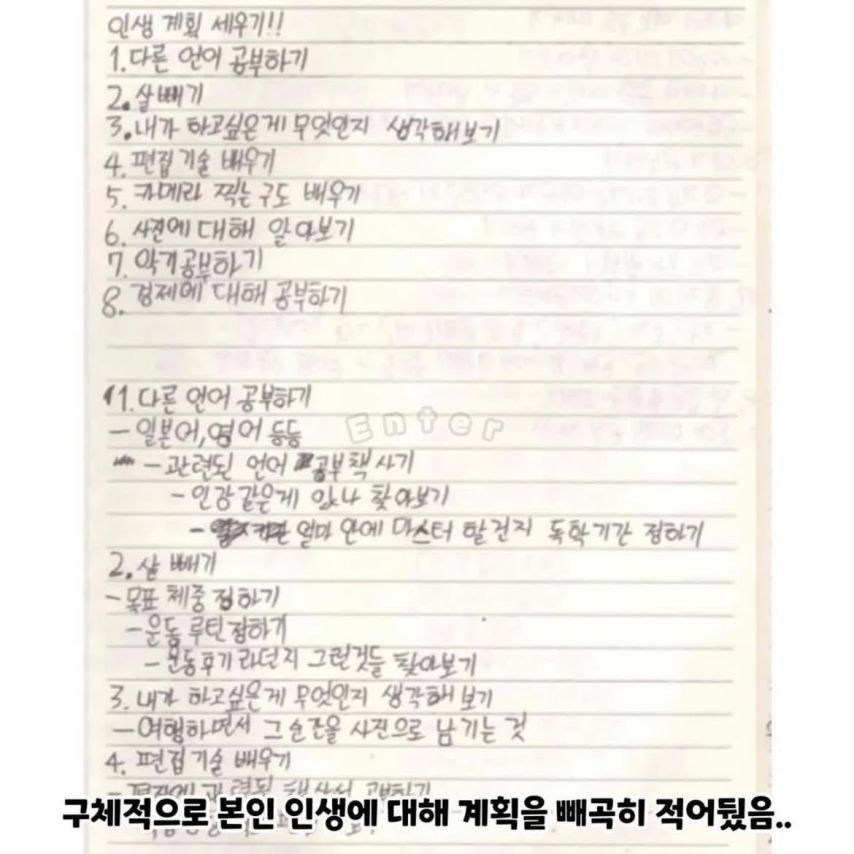 인생 계획 세우기!!
1. 다른 언어 공부하기
2. 살빼기
3. 내가 하고싶은게 무엇인지 생각해보기
4. 편집 기술 배우기
5. 카메라 찍는 구도 배우기
6. 사진에 대해 알아보기
7. 악기공부하기
8. 경제에 대해 공부하기
1. 다른 언어 공부하기
- 일본어, 영어 등등
Enter
- 관련된 언어 공부책 사기
- 인강같은게 있나 찾아보기
- 얼마 안에 마스터 할건지 독학기간 정하기
2. 살 빼기
- 목표 체중 정하기
- 운동 루틴정하기
- 운동후기라던지 그런것들 찾아보기
3. 내가 하고싶은게 무엇인지 생각해 보기
- 여행하면서 그순간을 사진으로 남기는 것
4. 편집기술 배우기
구체적으로 본인 인생에 대해 계획을 빼곡히 적어뒀음..